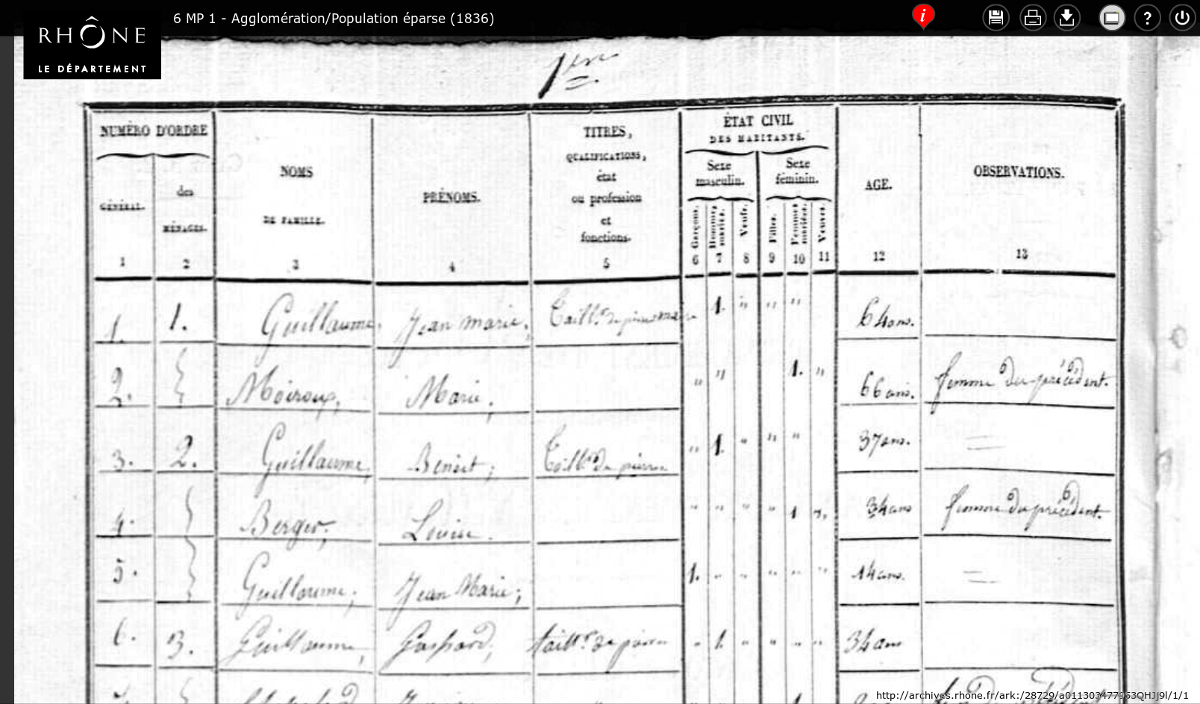 6 MP 1 - Agglomération/Population éparse (1836)
i
?
RHÔNE
LE DÉPARTEMENT
1ere
NUMÉRO D'ORDRE
GÉNÉRAL.
des
MÉNAGES.
NOMS
DE FAMILLE.
PRÉNOMS.
TITRES,
QUALIFICATIONS,
état
ou profession
et
fonctions.
ÉTAT CIVIL
DES HABITANTS.
Sexe
masculin.
Sexe
féminin.
Garçons.
Hommes mariés.
Veufs.
Filles.
Femmes mariées.
Veuves.
AGE.
OBSERVATIONS.
1 2 3 4 5 6 7 8 9 10 11 12 13
1. 1. Guillaume, Jean marie, Taillr. de pierre 1. " " " 64 ans.
2. Moiroux, Marie, " " 1. " 66 ans. femme du précédent.
3. 2. Guillaume, Benoit, Taillr. de pierre " 1. " " " 37 ans.
4. Berger, Louise. " " " " 1 34 ans femme du précédent.
5. Guillaume, Jean Marie, 1. " " " " " 14 ans.
6. 3. Guillaume, Gaspard, taillr. de pierre " 1. " " " " 34 ans